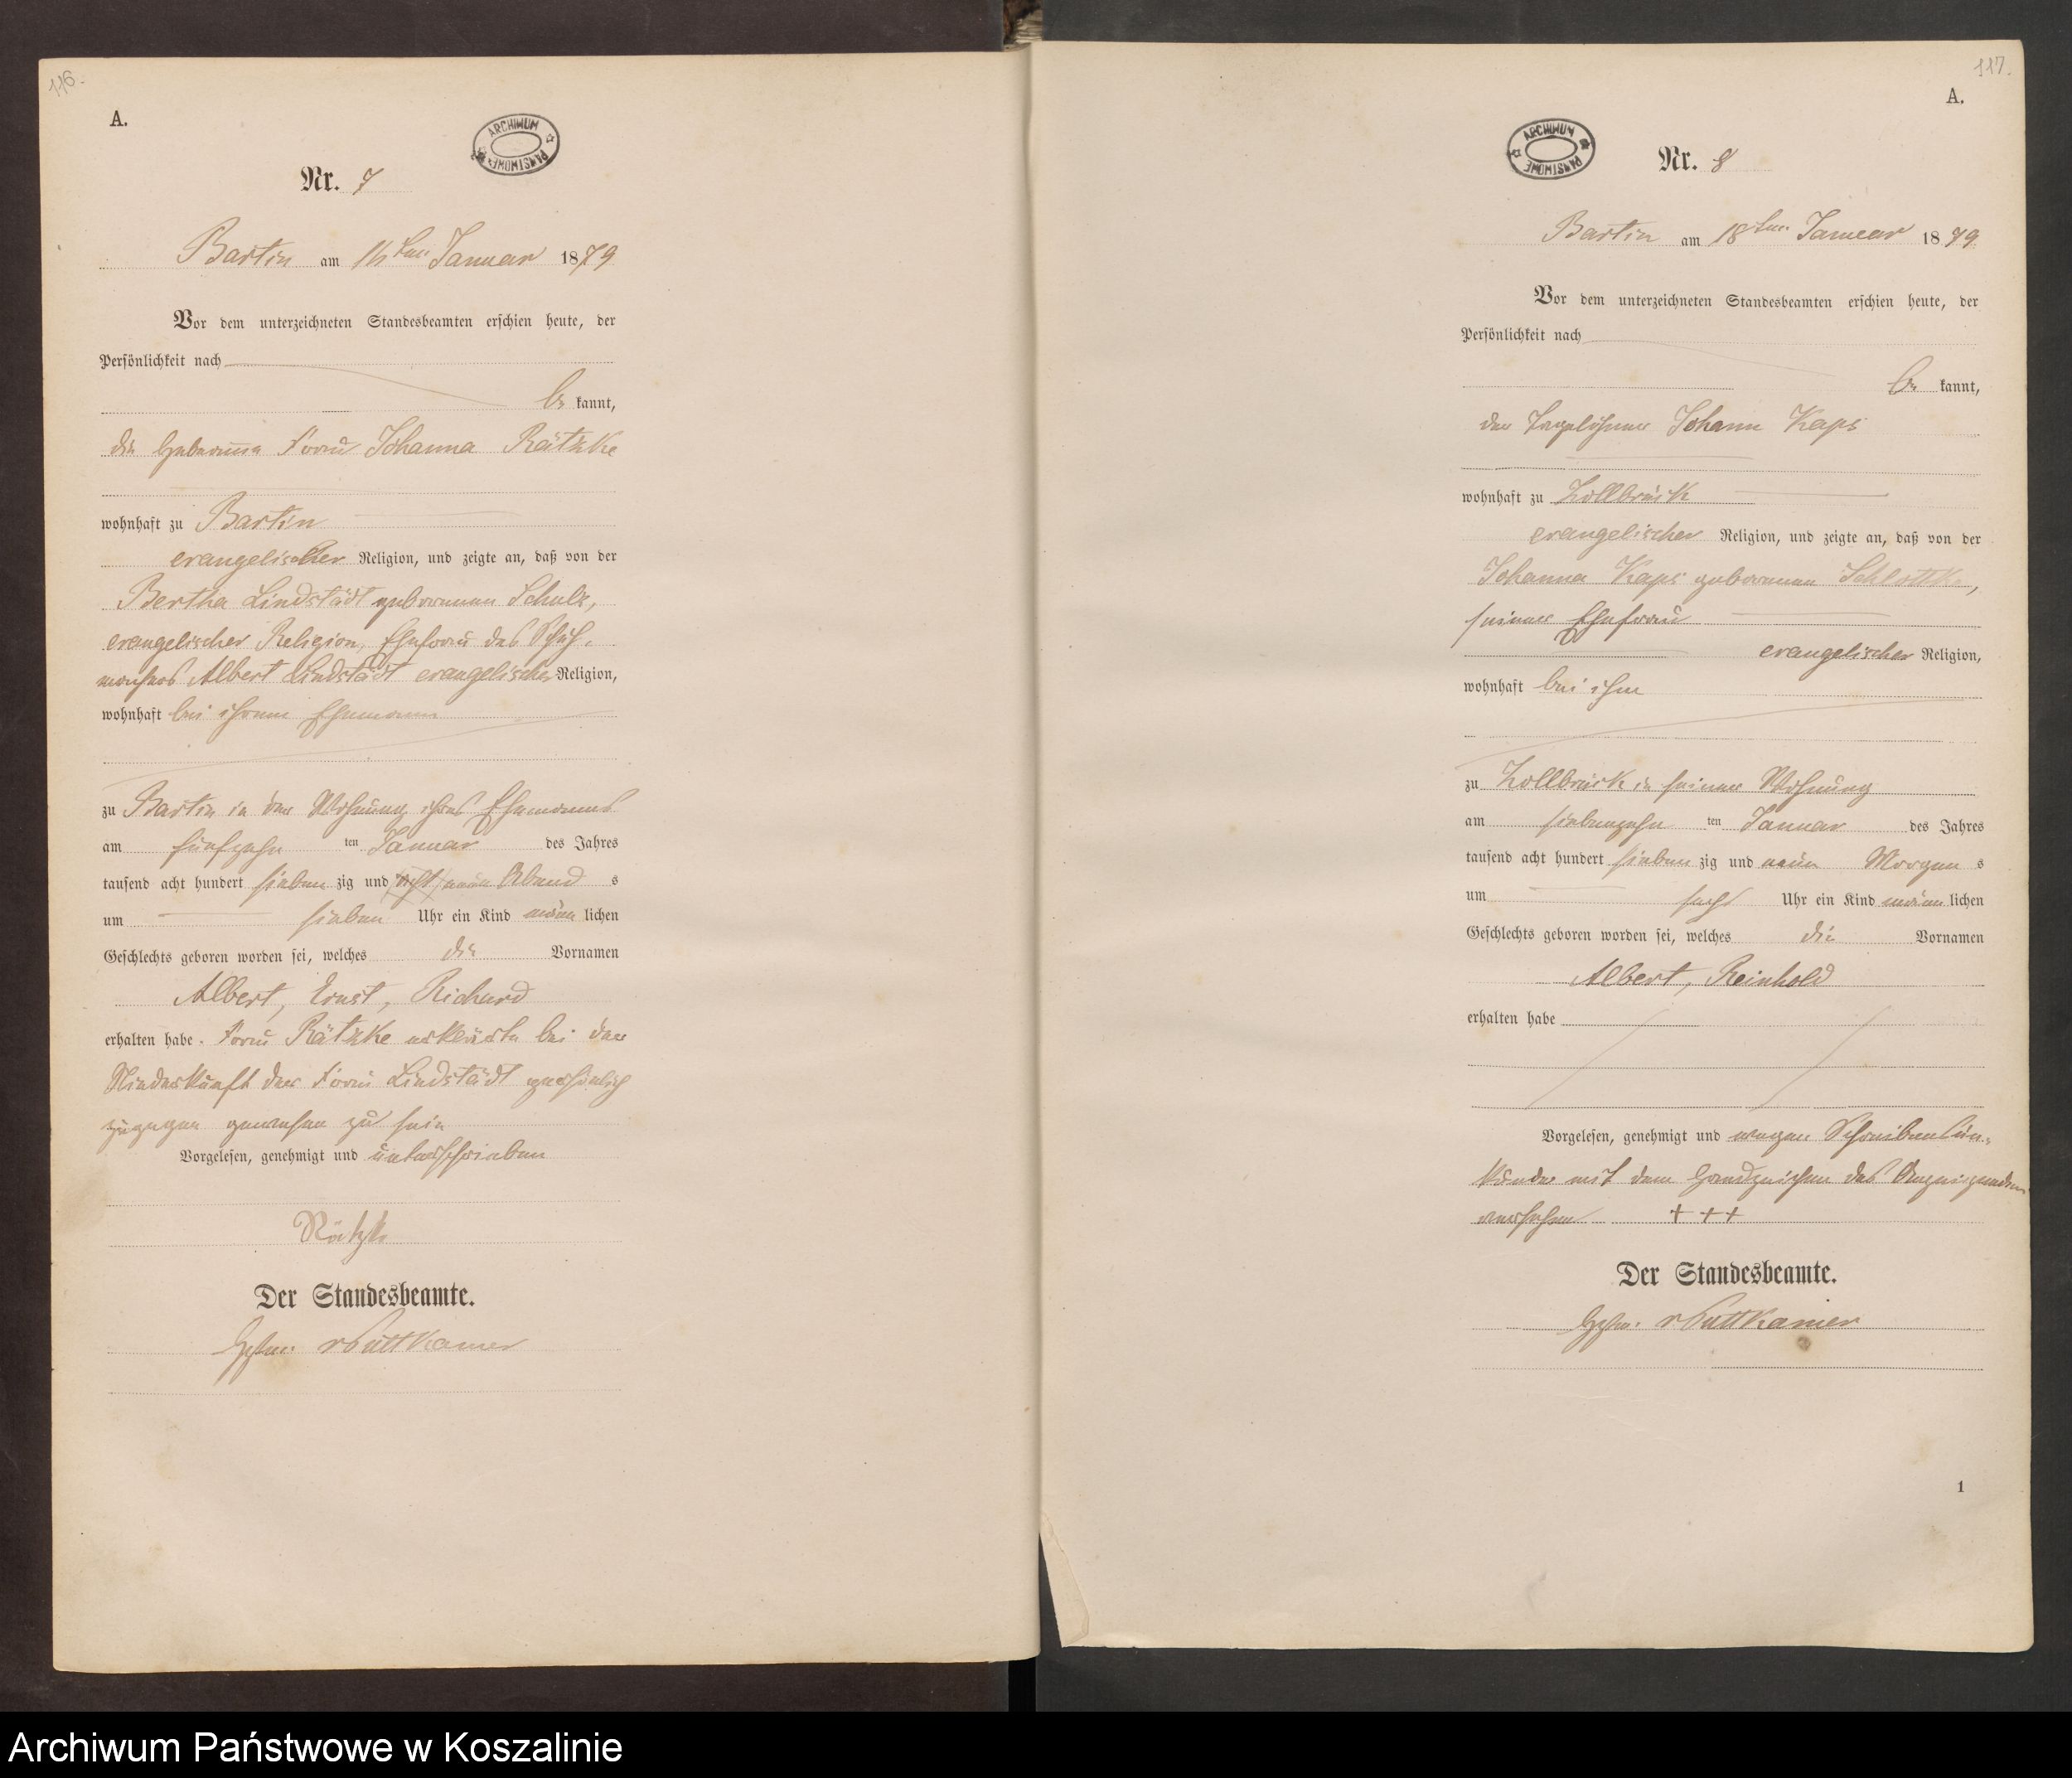 116.
A.
ARCHIWUM PAŃSTWOWE
Nr. 7
Bartin am 16ten Januar 1879
Vor dem unterzeichneten Standesbeamten erschien heute, der
Persönlichkeit nach
be kannt,
die Hebamme Frau Johanna Rätzke
wohnhaft zu Bartin
evangelischer Religion, und zeigte an, daß von der
Bertha Lindstädt geborenen Schulz,
evangelischer Religion, Ehefrau des Schuh-
machers Albert Lindstädt evangelischer Religion,
wohnhaft bei ihrem Ehemann
zu Bartin in der Wohnung ihres Ehemannes
am fünfzehn ten Januar des Jahres
tausend acht hundert sieben zig und acht neun Abend s
um sieben Uhr ein Kind männ lichen
Geschlechts geboren worden sei, welches die Vornamen
Albert, Ernst, Richard
erhalten habe. Frau Rätzke erklärte bei der
Niederkunft der Frau Lindstädt persönlich
zugegen gewesen zu sein
Vorgelesen, genehmigt und unterschrieben
Rätzke
Der Standesbeamte.
vPuttkamer
117.
A.
ARCHIWUM PAŃSTWOWE
Nr. 8
Bartin am 18ten Januar 1879
Vor dem unterzeichneten Standesbeamten erschien heute, der
Persönlichkeit nach
be kannt,
der Tagelöhner Johann Kaps
wohnhaft zu Zollbrück
evangelischer Religion, und zeigte an, daß von der
Johanna Kaps geborenen Schlottke,
seiner Ehefrau
evangelischer Religion,
wohnhaft bei ihm
zu Zollbrück in seiner Wohnung
am siebenzehn ten Januar des Jahres
tausend acht hundert sieben zig und neun Morgen s
um sechs Uhr ein Kind männ lichen
Geschlechts geboren worden sei, welches die Vornamen
Albert, Reinhold
erhalten habe
Vorgelesen, genehmigt und wegen Schreibensun-
kunde mit dem Handzeichen des Anzeigenden
versehen +++
Der Standesbeamte.
vPuttkamer
1
Archiwum Państwowe w Koszalinie